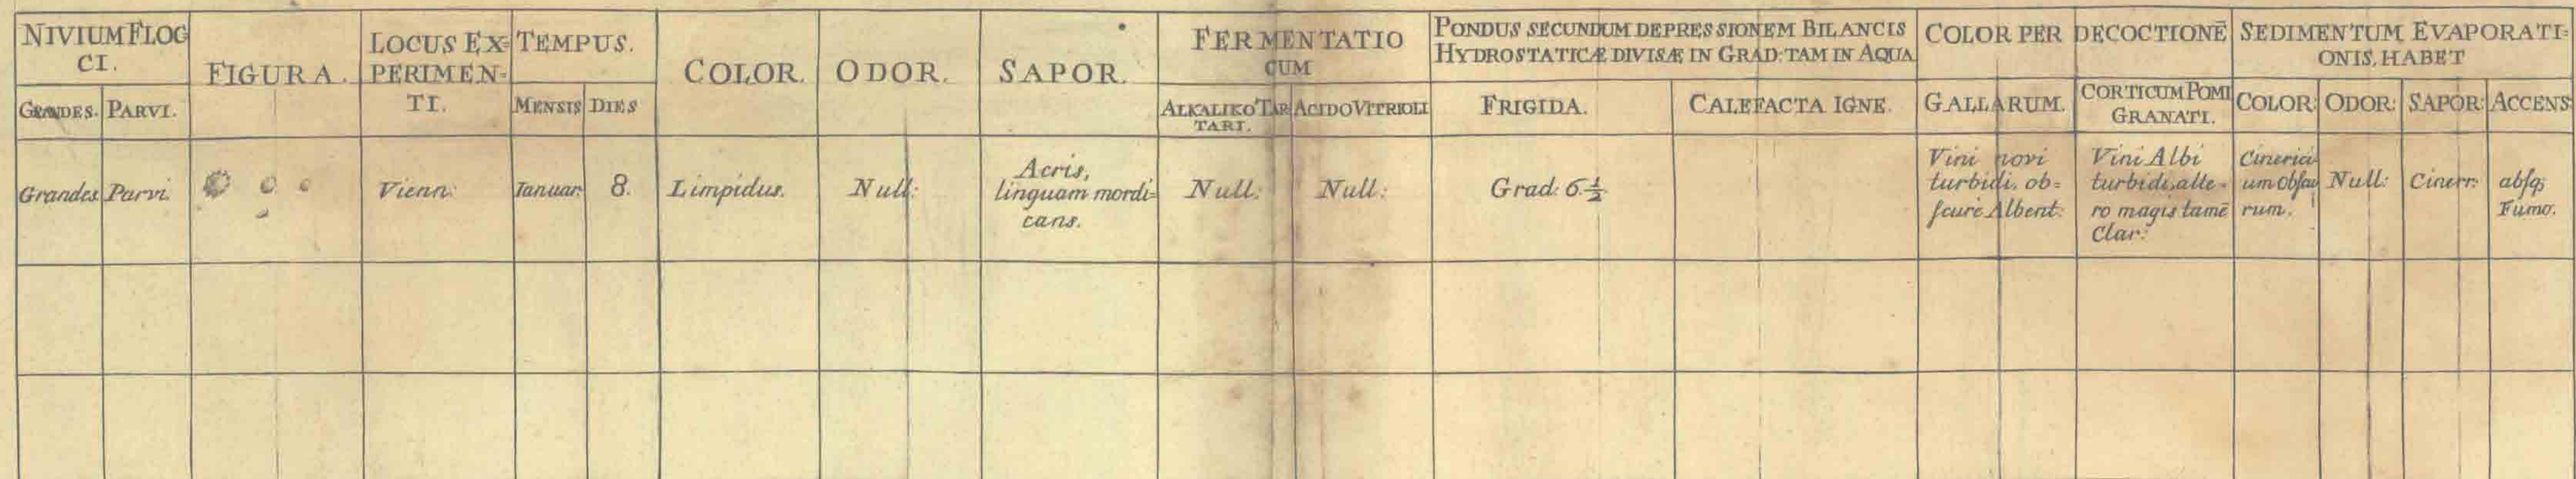 NIVIUM FLOC
CI.
GRANDES. PARVI.
FIGURA.
LOCUS EX=
PERIMEN=
TI.
TEMPUS.
MENSIS DIES
COLOR.
ODOR.
SAPOR.
FERMENTATIO
CUM
ALKALIKO TAR
TARI.
ACIDO VITRIOLI
PONDUS SECUNDUM DEPRESSIONEM BILANCIS
HYDROSTATICÆ DIVISÆ IN GRAD: TAM IN AQUA
FRIGIDA.
CALEFACTA IGNE.
COLOR PER DECOCTIONĒ
GALLARUM.
CORTICUM POMI
GRANATI.
SEDIMENTUM EVAPORATI=
ONIS, HABET
COLOR: ODOR: SAPOR: ACCENS:
Grandes. Parvi.
Vienn:
Ianuar: 8.
Limpidus.
Null:
Acris,
linguam mordi=
cans.
Null:
Null:
Grad: 6.½
Vini novi
turbidi, ob=
ſcure Albent:
Vini Albi
turbidi, alte=
ro magis tamē
Clar:
Cinerici
um Obſcu
rum.
Null:
Cinerr:
abſq;
Fumo.